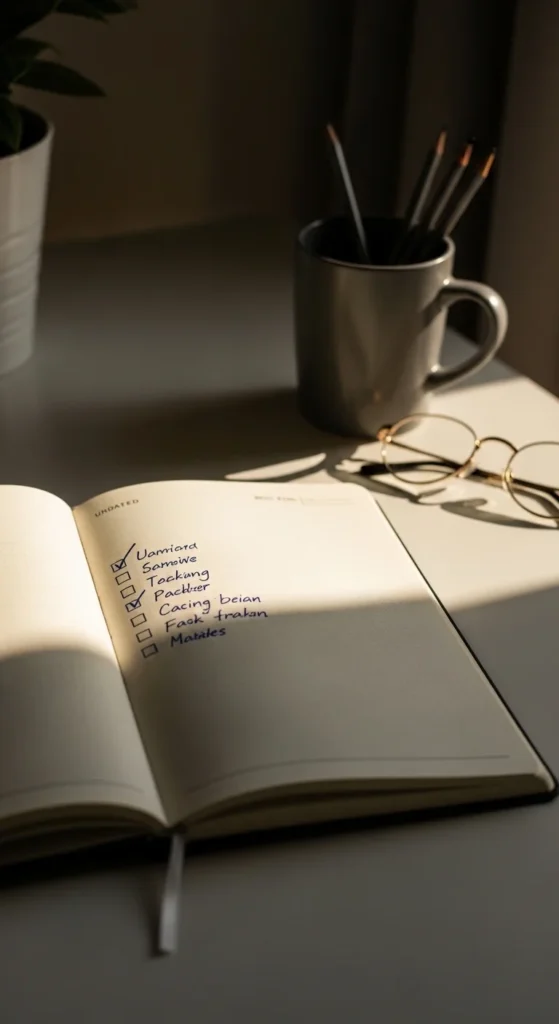 UNDATED
Uamiara
Samoive
Tackang
Packber
Cacing beian
Faok frakan
Matales